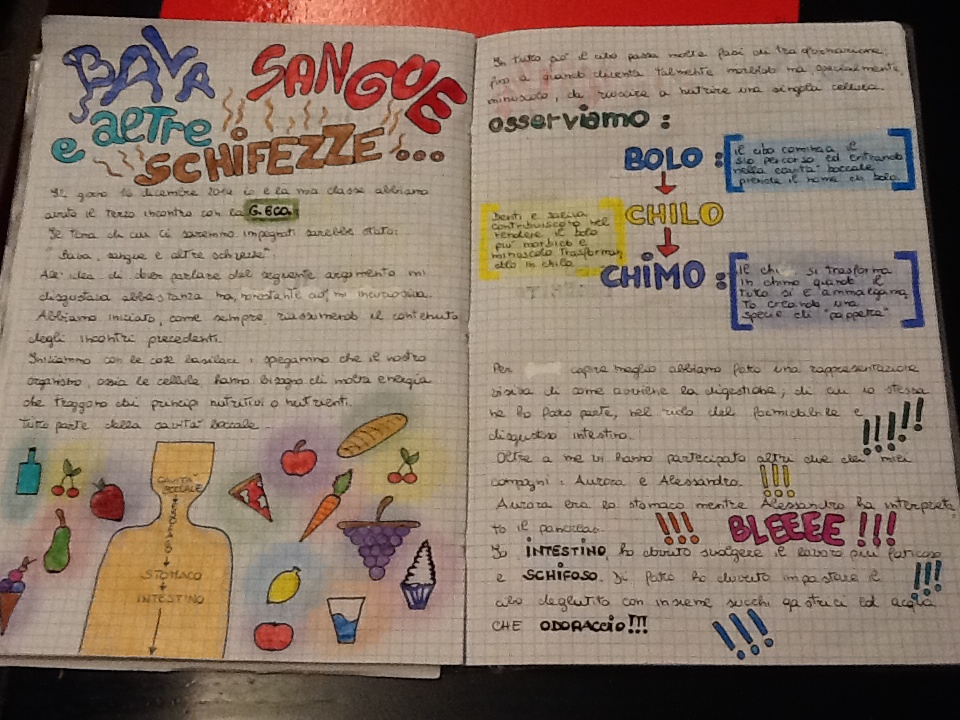 BAVA SANGUE
e alTre
SCHIFEZZE...
Il giorno 16 dicembre 2014 io e la mia classe abbiamo
avuto il terzo incontro con la G. ECO.
Il tema di cui ci saremmo impegnati sarebbe stato:
"Bava, sangue e altre schifezze".
All'idea di dover parlare del seguente argomento mi
disgustava abbastanza ma, nonostante ciò, mi incuriosiva.
Abbiamo iniziato, come sempre riassumendo il contenuto
degli incontri precedenti.
Iniziammo con le cose basilari: spiegammo che il nostro
organismo, ossia le cellule, hanno bisogno di molta energia
che traggono dai principi nutritivi o nutrienti.
Tutto parte dalla cavità boccale.
CAVITÀ
BOCCALE
STOMACO
INTESTINO
In tutto ciò il cibo passa molte fasi di trasformazione,
fino a quando diventa talmente morbido ma, specialmente,
minuscolo, da riuscire a nutrire una singola cellula.
osserviamo :
BOLO :
il cibo comincia il
suo percorso ed entrando
nella cavità boccale
prende il nome di bolo.
Denti e saliva
contribuiscono nel
rendere il bolo
più morbido e
minuscolo trasforman
dolo in chilo
CHILO
CHIMO :
Il chilo si trasforma
in chimo quando il
tutto si è amalgama
to creando una
specie di "pappetta"
Per capire meglio abbiamo fatto una rappresentazione
visiva di come avviene la digestione, di cui io stessa
ne ho fatto parte, nel ruolo del formidabile e
disgustoso intestino. !!!!!
Oltre a me vi hanno partecipato altri due dei miei
compagni : Aurora e Alessandro. !!!
Aurora era lo stomaco mentre Alessandro ha interpreta
to il pancreas. !!! BLEEEE !!!
Io INTESTINO, ho dovuto svolgere il lavoro più faticoso
e SCHIFOSO. Di fatto ho dovuto impastare il !!!
cibo deglutito con insieme succhi gastrici ed acqua
CHE ODORACCIO!!! !!!